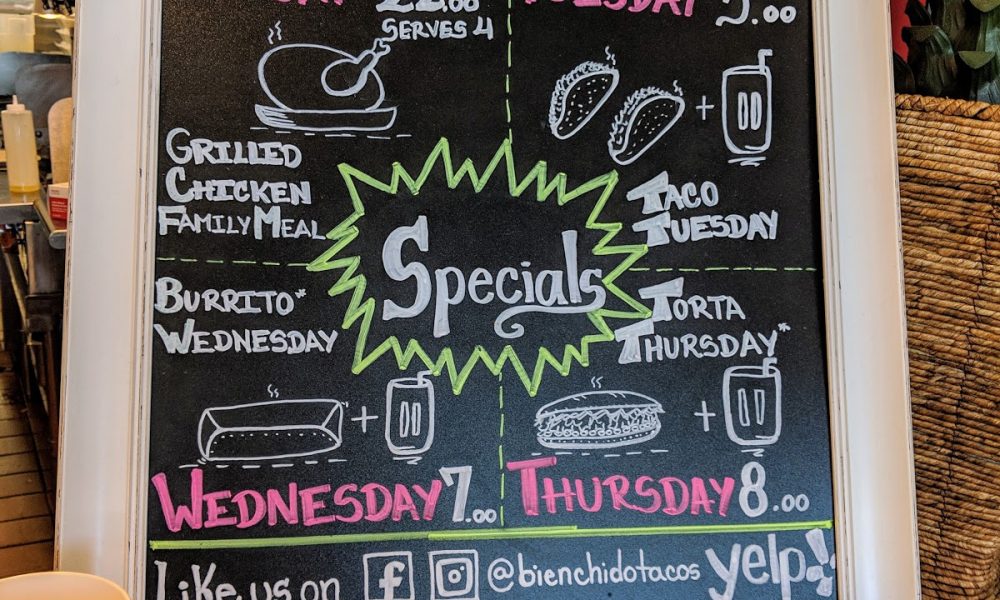 TUESDAY
SERVES 4
GRILLED
CHICKEN
FAMILY MEAL
+
TACO
TUESDAY
Specials
BURRITO*
WEDNESDAY
TORTA
THURSDAY*
+
+
WEDNESDAY 7.00
THURSDAY 8.00
Like us on f @bienchidotacos yelp!